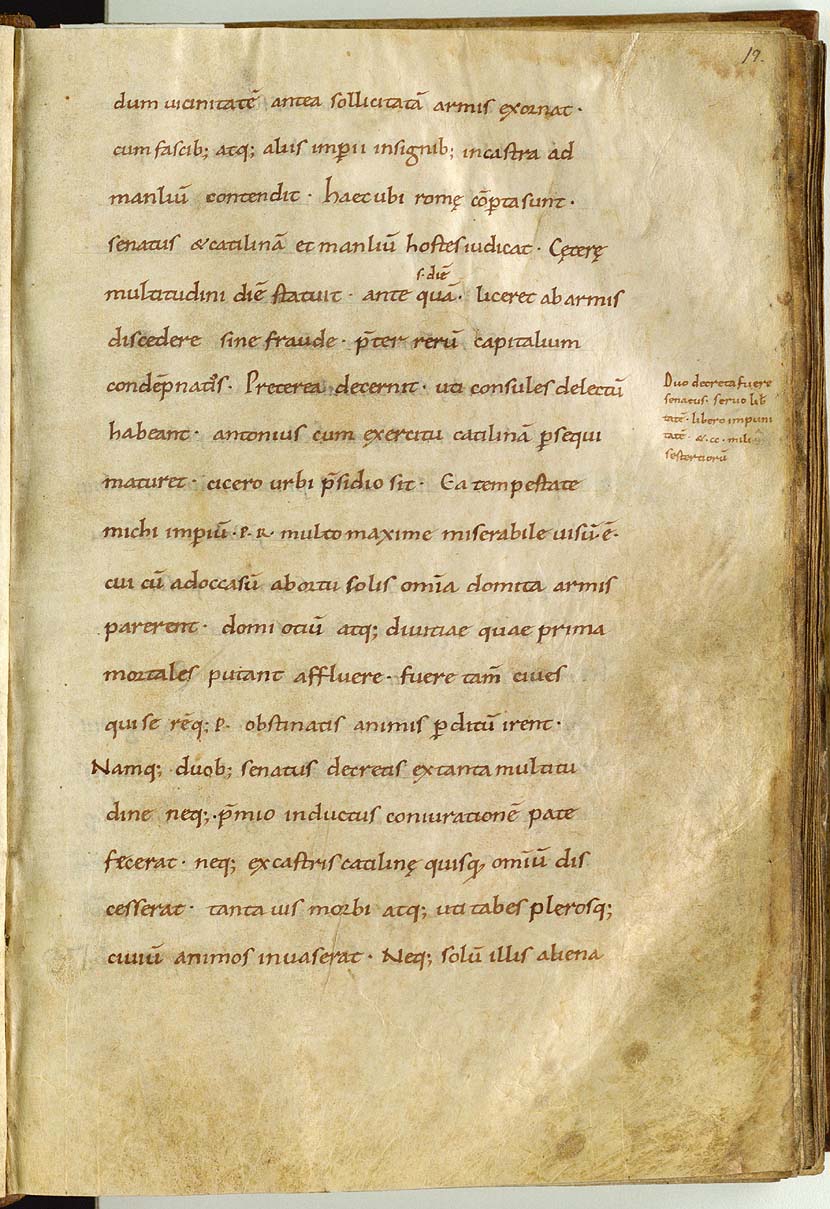 19.
dum uicinitatē antea sollicitatā armis exornat·
cum fascib; atq; aliis imp̄ii insignib; incastra ad
manliū contendit· haec ubi romę cōp̄ta sunt·
senatus &catilinā et manliū hostes iudicat· Cęterę
s· diē
multitudini diē statuit· ante quā· liceret ab armis
discedere sine fraude· p̄ter rerū capitalium
condēpnatis· Preterea decernit· uti consules delectū
habeant· antonius cum exercitu catilinā p̱sequi
maturet· cicero urbi p̄sidio sit· Ea tempestate
michi imp̱iū ·P·R· multo maxime miserabile uisū·ē·
cui cū adoccasū abortu solis om̄ia domita armis
parerent· domi otiū atq; diuitiae quae prima
mortales putant affluere· fuere tam̄ ciues
qui se rēq; P· obstinatis animis p̱ditū irent·
Namq; duob; senatus decretis extanta multitu
dine neq;· p̄mio inductus coniurationē pate
fecerat· neq; excastris catilinę quisq̱ om̄iū dis
cesserat· tanta uis morbi atq; uti tabes plerosq;
ciuiū animos inuaserat· Neq; solū illis aliena
Duo decreta fuere
senatus· seruo lib̄
tatē· libero impuni
tatē· &·cc·mili
sestertiorū